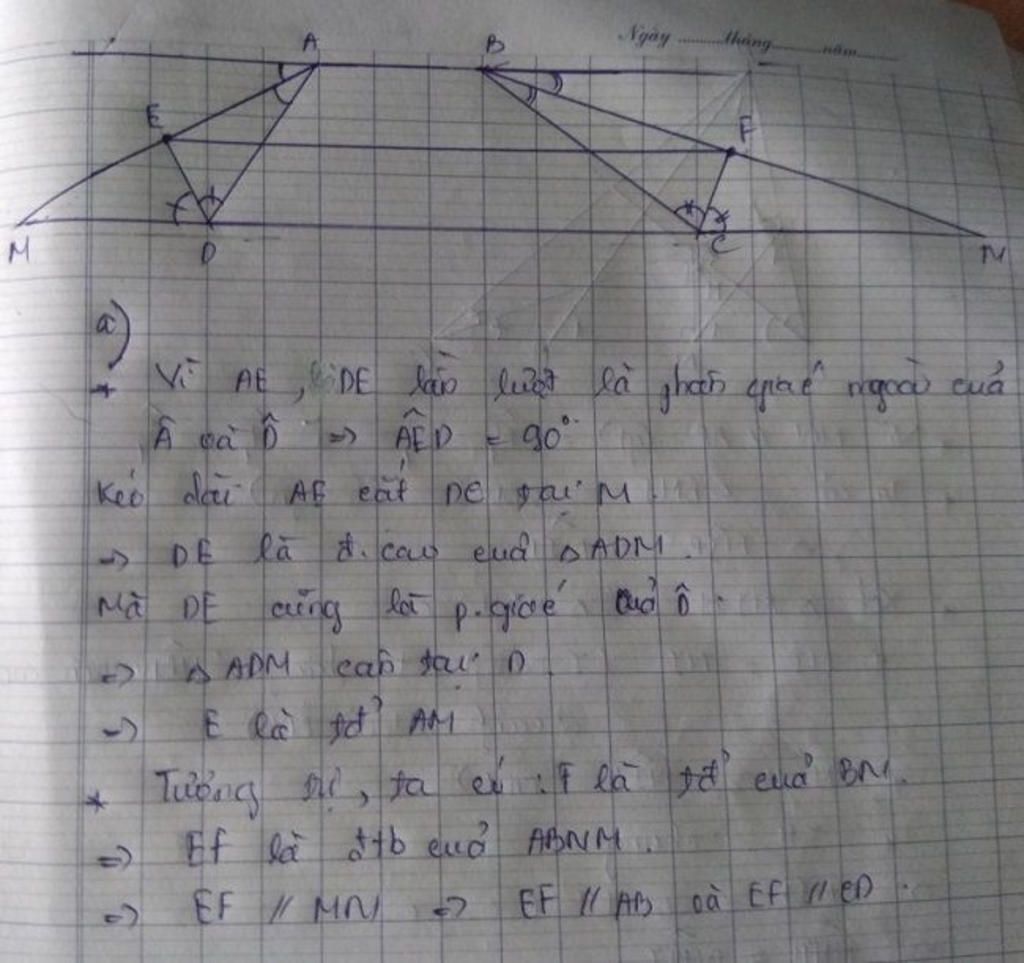 Ngày ......... tháng ......... năm .........
A B
E F
M D C N
a)
* Vì AE, DE lần lượt là phân giác ngoài của
Â và D̂ => AÊD = 90°.
Kéo dài AE cắt DC tại M.
=> DE là đ. cao của △ADM.
Mà DE cũng là p. giác của D̂.
=> △ADM cân tại D.
=> E là tđ' AM
* Tương tự, ta có : F là tđ' của BN.
=> EF là đtb của ABNM.
=> EF // MN => EF // AB và EF // CD.